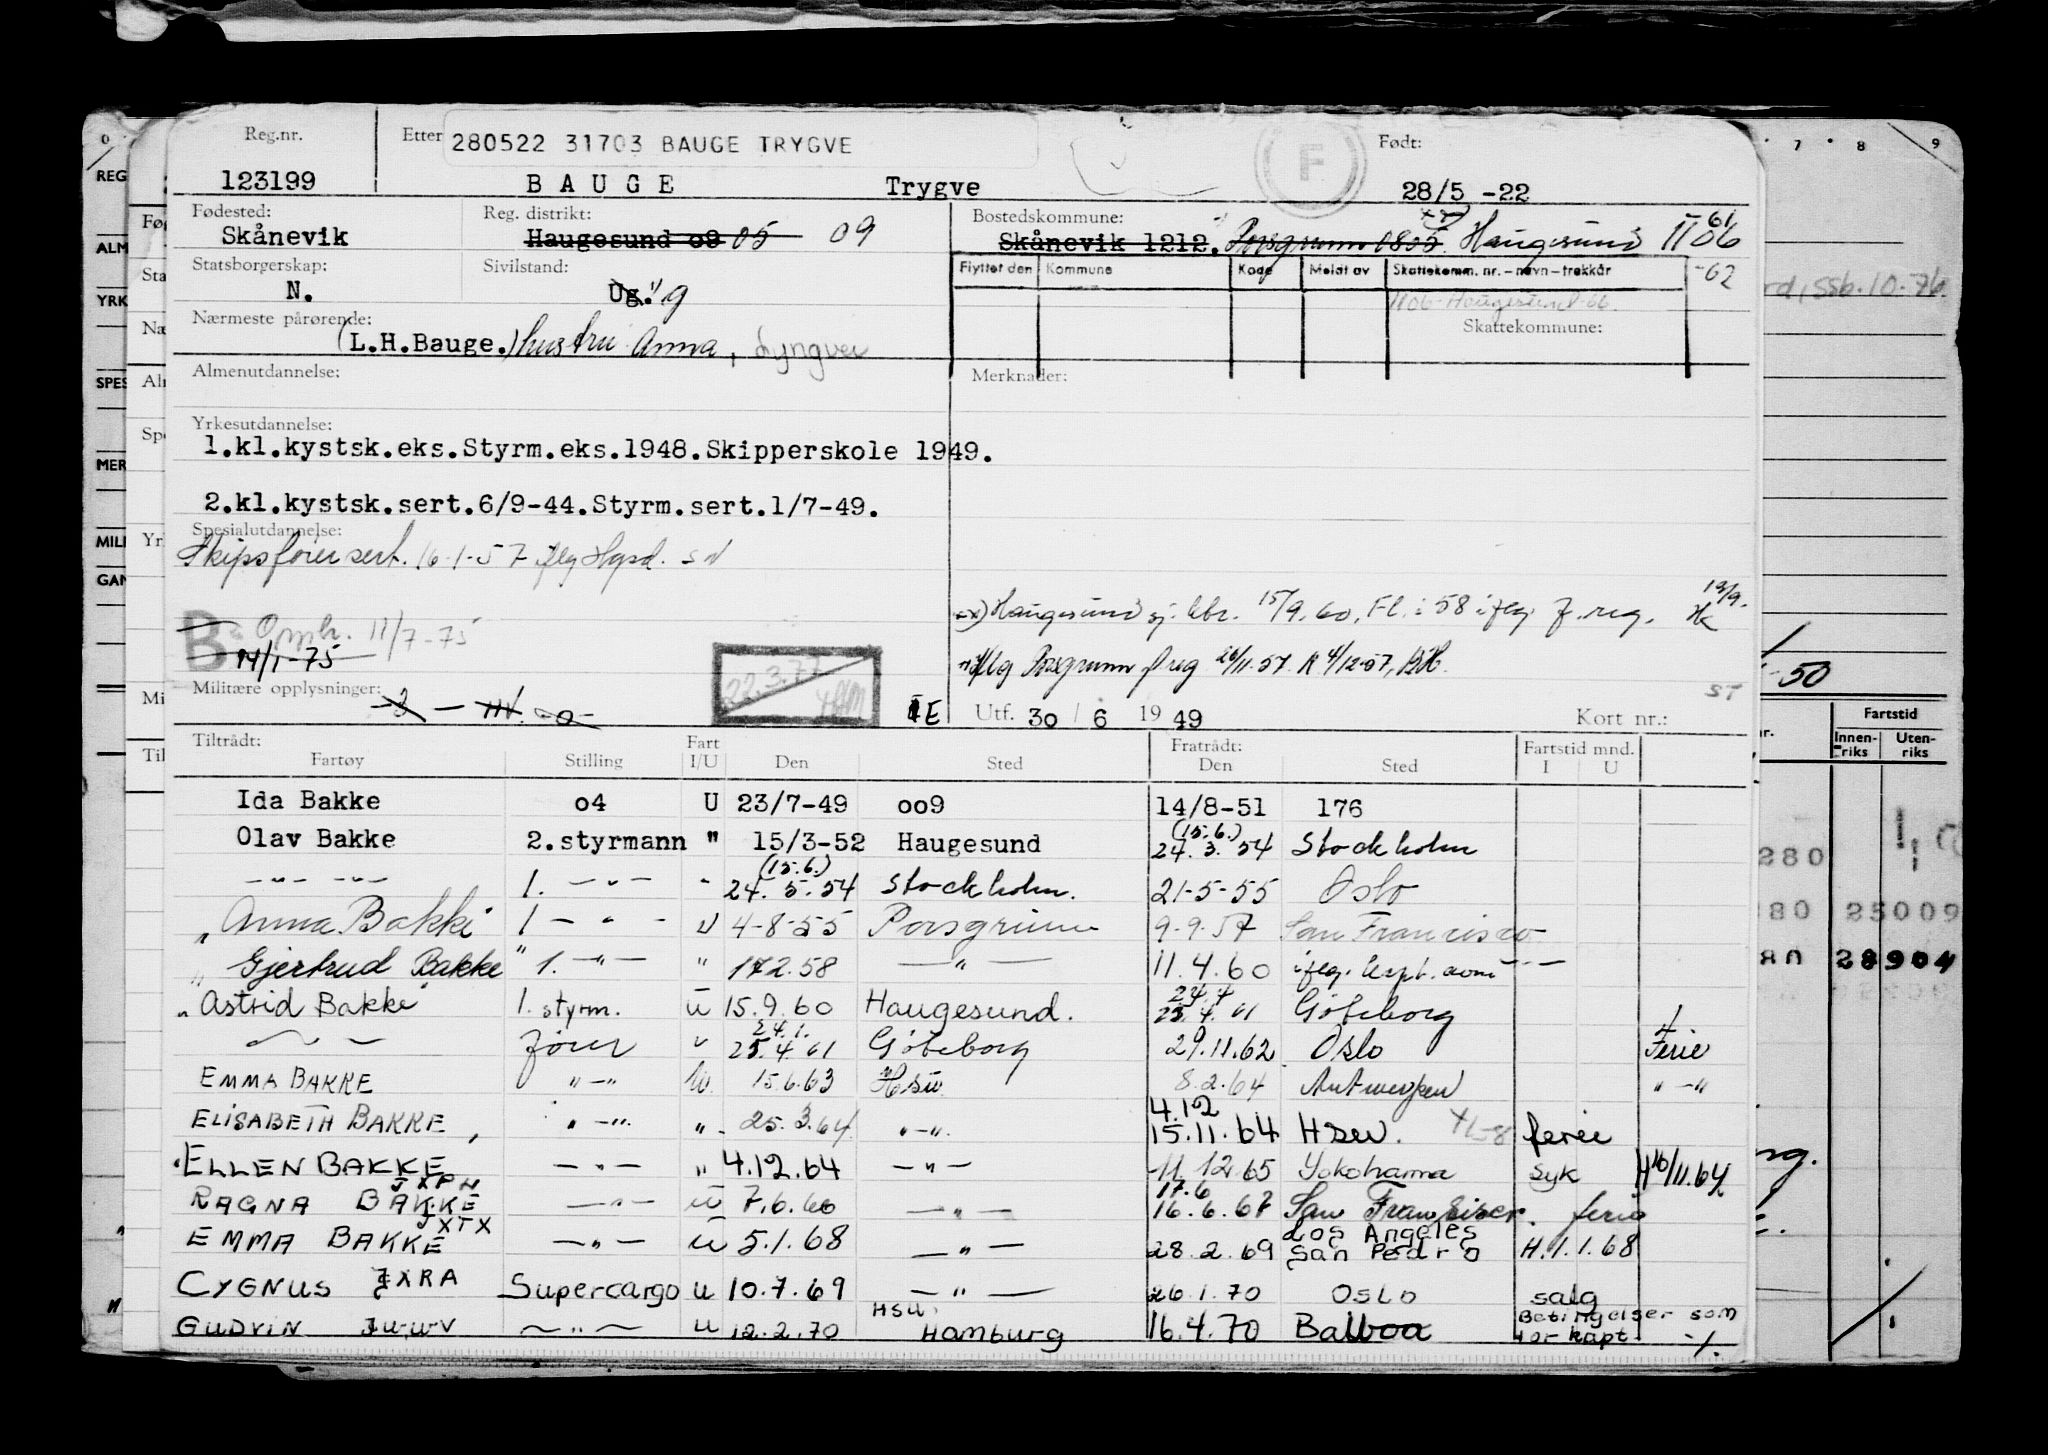 Reg.nr. Etter 280522 31703 BAUGE TRYGVE F Født:
123199 BAUGE Trygve 28/5 -22
Fødested: Reg. distrikt: Bostedskommune:
Skånevik Haugesund o9 05 09 Skånevik 1212. Porsgrunn 0805 Haugesund 1106 61
Statsborgerskap: Sivilstand: Flyttet den Kommune Kode Meldt av Skattekomm. nr. – navn – trekkår -62
N. Ug. g 1106-Haugesund-66.
Nærmeste pårørende: Skattekommune:
(L.H.Bauge.) hustru Anna, Lyngvei
Almenutdannelse: Merknader:
Yrkesutdannelse:
1.kl.kystsk.eks.Styrm.eks.1948.Skipperskole 1949.
2.kl.kystsk.sert.6/9-44.Styrm.sert.1/7-49.
Spesialutdannelse:
Skipsførersert. 16-1-57 iflg Hgsd.
xx) Haugesund sj. 15/9.60, Fl. i 58 iflg f.reg. 19/9. HK
B 11/7-75
14/1-75
iflg Porsgrunn f reg 26/11-57. 4/12-57,
Militære opplysninger: 22.3.77 E Utf. 30 / 6 19 49 Kort nr.: ST
Tiltrådt: Fart Fratrådt: Fartstid mnd.
Fartøy Stilling I/U Den Sted Den Sted I U
Ida Bakke o4 U 23/7-49 oo9 14/8-51 176
Olav Bakke 2.styrmann " 15/3-52 Haugesund (15.6.) 24.3.54 Stockholm
-"- -"- 1. -"- " (15.6.) 24.5.54 Stockholm. 21-5-55 Oslo
Anna Bakke 1 - " - U 4-8-55 Porsgrunn 9-9-57 San Francisco
" Gjertrud Bakke " 1. -"- " 17.2.58 -"- 11.4.60 iflg.
" Astrid Bakke 1. styrm. U 15.9.60 Haugesund. 24.4 25.4.61 Göteborg
- " - fører " 24.1. 25.4.61 Göteborg 29.11.62 Oslo Ferie
EMMA BAKKE "-" U 15.6.63 Hsu 8.2.64 Antwerpen "-"
ELISABETH BAKKE, "-" " 25.3.64 "-" 4.12 15.11.64 Hseu. ferie
ELLEN BAKKE -"- " 4.12.64 -"- 11.12.65 Yokohama syk H 10/11.64
RAGNA BAKKE JXPN -"- U 7.6.66 -"- 17.6 16.6.67 San Francisco. ferie
EMMA BAKKE JXTX -"- U 5.1.68 -"- 28.2.69 Los Angeles San Pedro H.1.1.68
CYGNUS JXRA Supercargo U 10.7.69 -"- 26.1.70 OSLO salg
GUDRIN JWWV -"- U 12.2.70 HSU. Hamburg 16.4.70 Balboa Betingelser som for kapt. -/.
0 7 8 9
REG
ALM
YRK
SPES
MER
MILI
GAN
Fø
Sta
Næ
Alr
Spe
Yr
Mi
Til
rd, SSb. 10.76
-50
Fartstid
Innen-riks Uten-riks
280
280 25009
80 28904